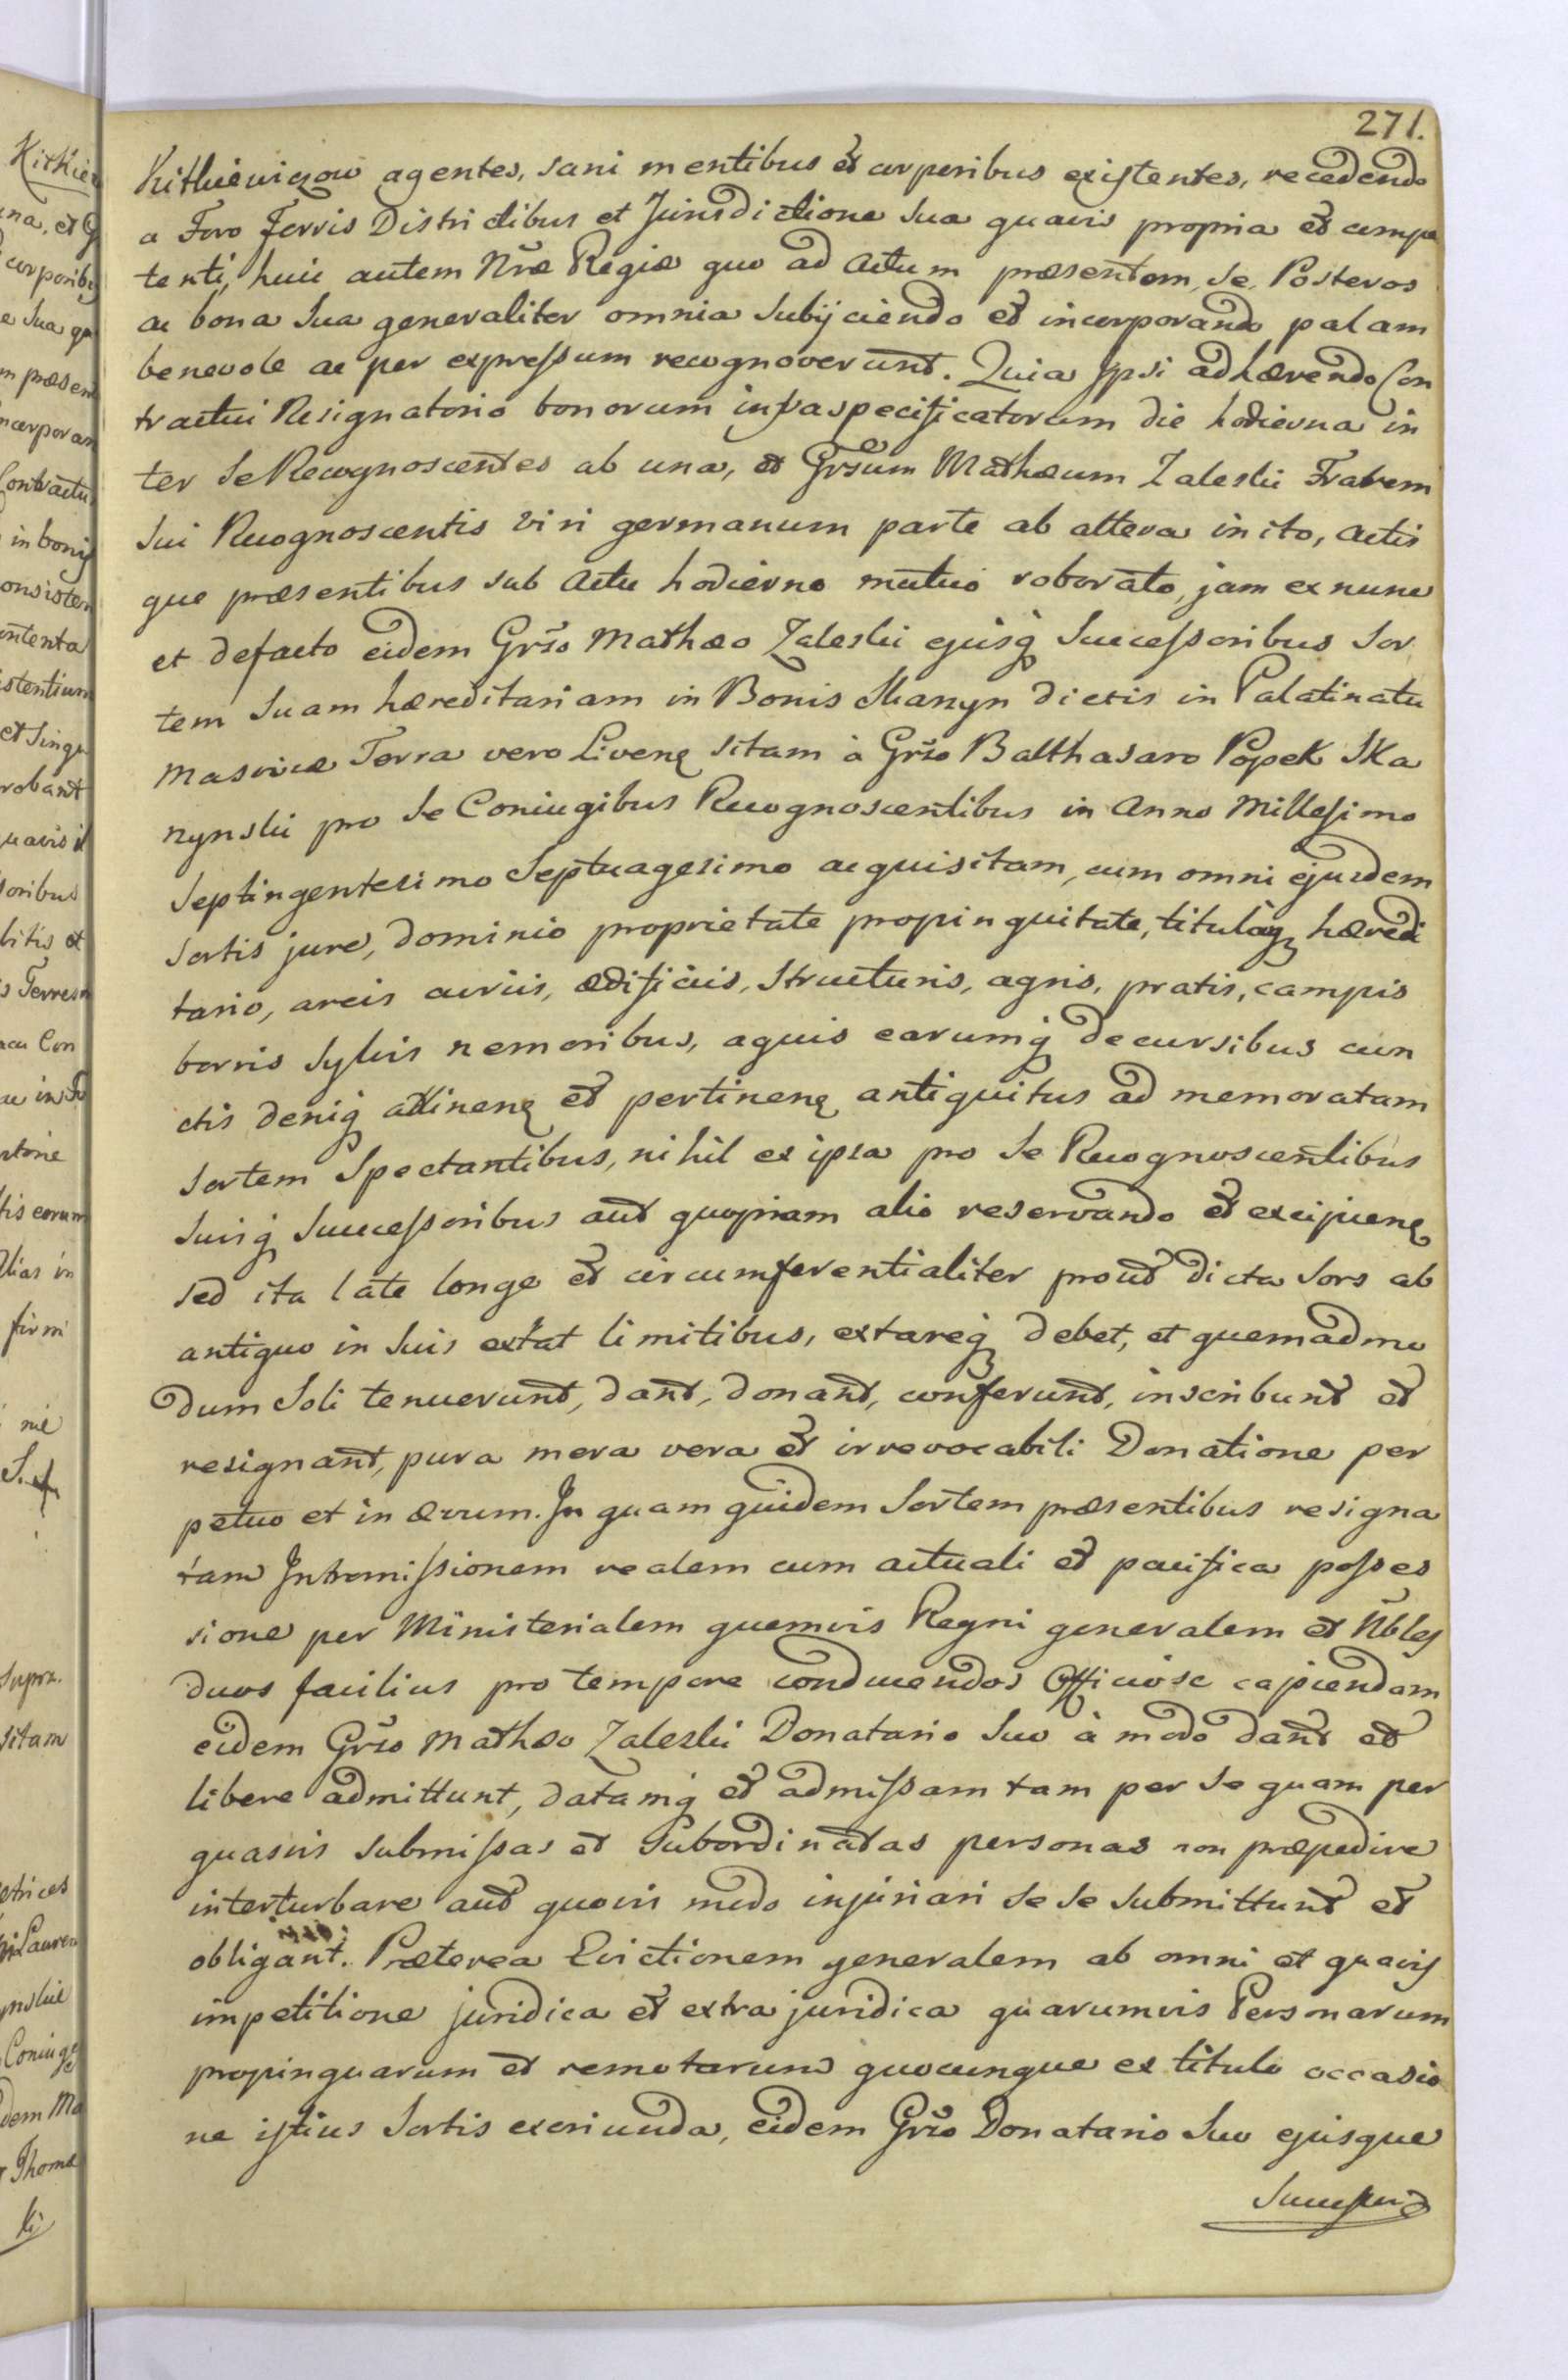 271.
Kitkiewiczow agentes, sani mentibus et corporibus existentes, recedendo
a Foro Terris Districtibus et Jurisdictione sua quavis propria et compe
tenti, huic autem Nræ Regiæ quo ad actum præsentem, se, Posteros
ac bona sua generaliter omnia subijciendo et incorporando palam
benevole ac per expressum recognoverunt. Quia ipsi adhærendo Con
tractui Resignatorio bonorum infraspecificatorum die hodierna in
ter se Recognoscentes ab una, et Grsum Mathæum Zaleski Fratrem
sui Recognoscentis viri germanum parte ab altera inito, actis
que præsentibus sub actu hodierno mutuo roborato, jam ex nunc
et defacto eidem Grso Mathæo Zaleski ejusq Successoribus Sor
tem suam hæreditariam in Bonis Skanyn dictis in Palatinatu
Masoviæ Terra vero Livenę sitam à Grso Balthasaro Popek Ska
nynski pro se Coniugibus Recognoscentibus in Anno Millesimo
Septingentesimo Septuagesimo acquisitam, cum omni ejusdem
sortis jure, dominio proprietate propinquitate, tituloq hæredi
tario, areis curiis, ædificiis, structuris, agris, pratis, campis
borris sylvis nemoribus, aquis earumq decursibus cun
ctis deniq attinenę et pertinenę antiquitus ad memoratam
sortem spectantibus, nihil ex ipsa pro se Recognoscentibus
suisq Successoribus aut quopiam alio reservando et excipienę
sed ita late longe et circumferentialiter prout dicta sors ab
antiquo in suis extat limitibus, extareq debet, et quemadmo
dum soli tenuerunt, dant, donant, conferunt, inscribunt et
resignant, pura mera vera et irrevocabili Donatione per
petuo et in ævum. In quam quidem sortem præsentibus resigna
tam Intromissionem realem cum actuali et pacifica posses
sione per Ministerialem quemvis Regni generalem et Nbles
duos facilius pro tempore conducendos officiose capiendam
eidem Grso Mathæo Zaleski Donatario suo à modo dant et
libere admittunt, datamq et admissam tam per se quam per
quasvis submissas et subordinatas personas non præpedire
interturbare aut quovis modo injuriari se se submittunt et
obligant. Præterea Evictionem generalem ab omni et quavis
impetitione juridica et extrajuridica quarumvis Personarum
propinquarum et remotarum quocunque ex titulo occasio
ne istius sortis exoriunda, eidem Grso Donatario suo ejusque